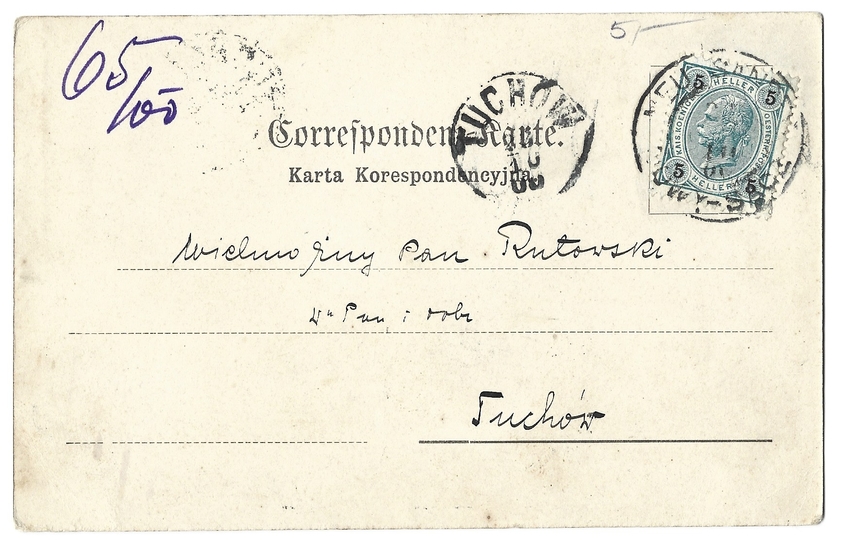 65/100
5,—
TUCHÓW
Correspondenz-Karte.
Karta Korespondencyjna.
5 HELLER 5
KAIS. KOENIGL. OESTERR. POST
5 HELLER 5
Wielmożny Pan Rutowski
Tuchów